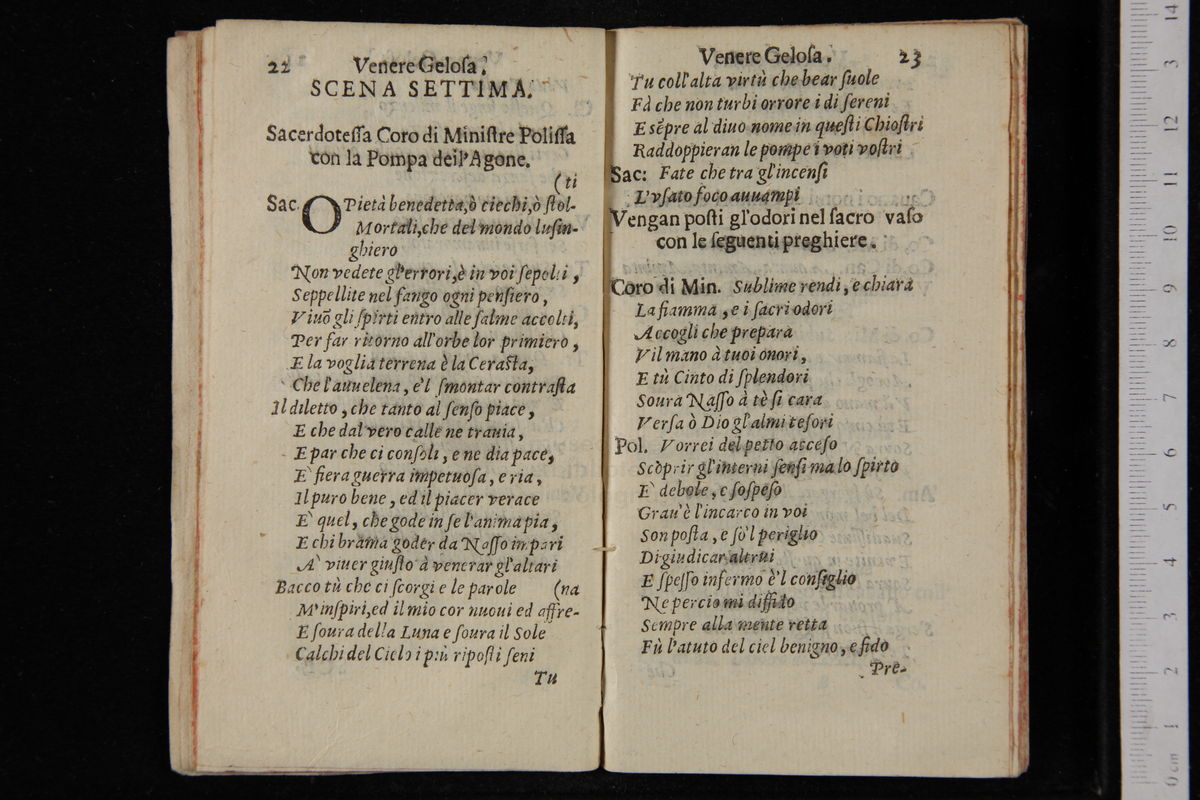 22 Venere Gelosa.
SCENA SETTIMA.
Sacerdotessa Coro di Ministre Polissa
con la Pompa dell'Agone.
(ti
Sac. O Pietà benedetta, ò ciechi, ò stol-
Mortali, che del mondo lusin-
ghiero
Non vedete gl'errori, è in voi sepolti,
Seppellite nel fango ogni pensiero,
Viuõ gli spirti entro alle salme accolti,
Per far ritorno all'orbe lor primiero,
E la voglia terrena è la Cerasta,
Che l'auuelena, e'l smontar contrasta
Il diletto, che tanto al senso piace,
E che dal vero calle ne trauia,
E par che ci consoli, e ne dia pace,
E' fiera guerra impetuosa, e ria,
Il puro bene, ed il piacer verace
E' quel, che gode in se l'anima pia,
E chi brama goder da Nasso impari
A' viuer giusto à venerar gl'altari
Bacco tù che ci scorgi e le parole (na
M'inspiri, ed il mio cor nuoui ed affre-
E soura della Luna e soura il Sole
Calchi del Cielo i più riposti seni
Tu
Venere Gelosa. 23
Tu coll'alta virtù che bear suole
Fà che non turbi orrore i di sereni
E sẽpre al diuo nome in questi Chiostri
Raddoppieran le pompe i voti vostri
Sac: Fate che tra gl'incensi
L'vsato foco auuampi
Vengan posti gl'odori nel sacro vaso
con le seguenti preghiere.
Coro di Min. Sublime rendi, e chiara
La fiamma, e i sacri odori
Accogli che prepara
Vil mano à tuoi onori,
E tù Cinto di splendori
Soura Nasso à tè si cara
Versa ò Dio gl'almi tesori
Pol. Vorrei del petto acceso
Scoprir gl'interni sensi ma lo spirto
E' debole, e sospeso
Grau'è l'incarco in voi
Son posta, e sò'l periglio
Di giudicar altrui
E spesso infermo è'l consiglio
Ne percio mi diffido
Sempre alla mente retta
Fù l'atuto del ciel benigno, e fido
Pre-